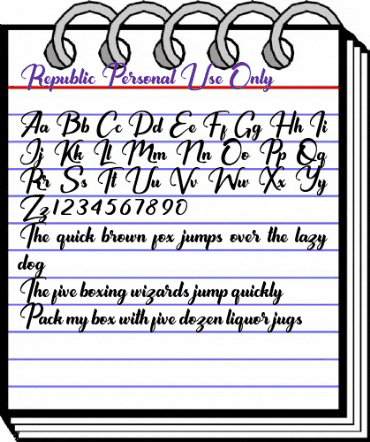 Republic Personal Use Only
Aa Bb Cc Dd Ee Ff Gg Hh Ii
Jj Kk Ll Mm Nn Oo Pp Qq
Rr Ss Tt Uu Vv Ww Xx Yy
Zz 1234567890
The quick brown fox jumps over the lazy
dog
The five boxing wizards jump quickly
Pack my box with five dozen liquor jugs